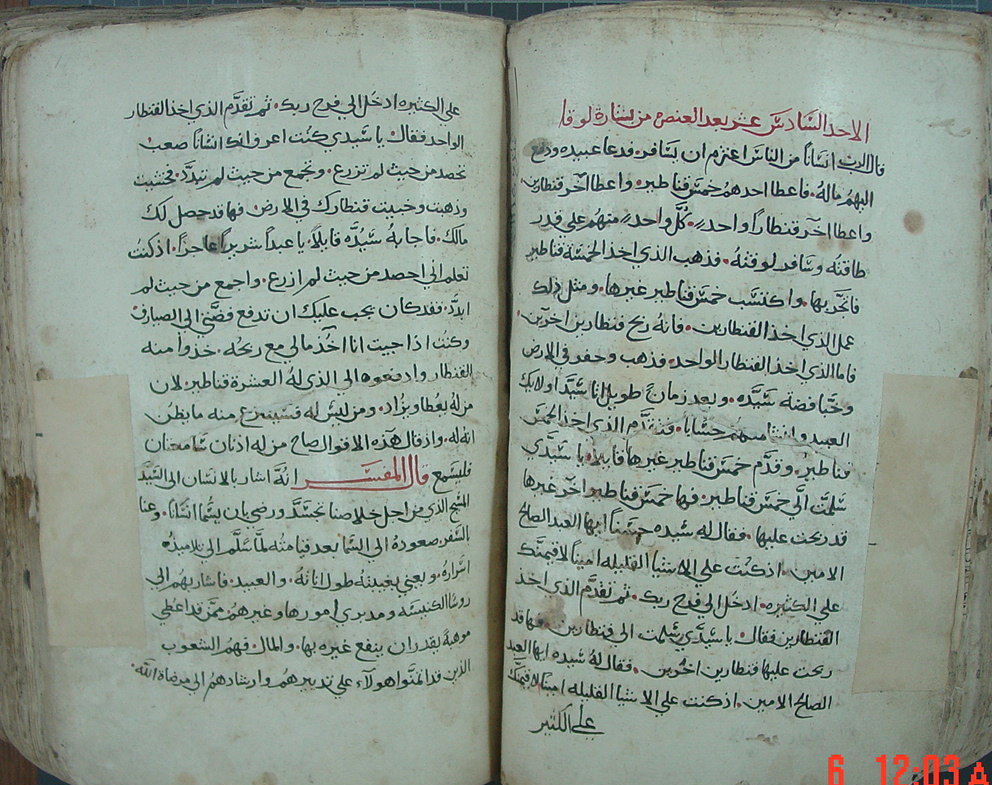 الاحد السادس عشر بعد العنصره من بشارة لوقا
قال الرب انسانًا من الناس اعتزم ان يسافر. فدعا عبيده ودفع
اليهم ماله. فاعطا احدهم خمس قناطير. واعطا آخر قنطارين.
واعطا آخر قنطارًا واحد. كل واحد منهم علي قدر
طاقته وسافر لوقته. فذهب الذي اخذ الخمسة قناطير
فاتجر بها. واكتسب خمس قناطير غيرها. ومثل ذلك
عمل الذي اخذ القنطارين. فانه ربح قنطارين اخرين.
فاما الذي اخذ القنطار الواحد. فذهب وحفر في الارض
وخبا فضة سيده. وبعد زمان طويل اتا سيد اولايك
العبيد حسابًا. فتقدم الذي اخذ الخمس
قناطير. وقدم خمس قناطير غيرها قايلا. يا سيدي
سلمت الي خمس قناطير. فها خمس قناطير اخر غيرها
قد ربحت عليها. فقال له سيده حسنًا ايها العبد الصالح
الامين. اذ كنت علي الاشيا القليله امينًا لاقيمنك
علي الكثيره. ادخل الي فرح ربك. ثم تقدم الذي اخذ
القنطارين فقال. يا سيدي سلمت الي قنطارين. فها قد
ربحت عليها قنطارين اخرين. فقال له سيده ايها العبد
الصالح الامين. اذ كنت علي الاشيا القليله امينًا لاقيمنك
علي الكثير
علي الكثيره ادخل الي فرح ربك. ثم تقدم الذي اخذ القنطار
الواحد فقال يا سيدي كنت اعرفك انك انسانًا صعب
تحصد من حيث لم تزرع. وتجمع من حيث لم تبدد. فخشيت
وذهبت وخبيت قنطارك في الارض فها قد حصل لك
مالك. فاجابه سيده قايلاً. يا عبدًا شريرًا عاجزًا. اذ كنت
تعلم اني احصد من حيث لم ازرع. واجمع من حيث لم
ابدد. فقد كان يجب عليك ان تدفع فضتي الي الصيارف
وكنت اذا جيت انا آخذ مالي مع ربحه. خذوا منه
القنطار وادفعوه الي الذي له العشرة قناطير. لان
من له يعطا ويزاد. ومن ليس له فسينتزع منه ما يظن
انه له. واذ قال هذه الاقوال صاح من له اذنان سامعتان
فليسمع قال المفسر انه اشار بالانسان الي السيد
المسيح الذي من اجل خلاصنا تجسد ورضي بان يسما انسانًا. وعنا
بالسفر صعوده الي السما بعد قيامته لما سلم الي تلاميذه
اسراره. ويعني بغيبته طول اناته. والعبيد. فاشار بهم الي
روسا الكنيسه ومدبري امورها وغيرهم ممن قد اعطي
موهبة يقدر ان ينفع غيره بها. والمال فهم الشعوب
الذين قد ائتمنوا هولاء علي تدبيرهم وارشادهم الي مرضاة الله.
6 12:03 A